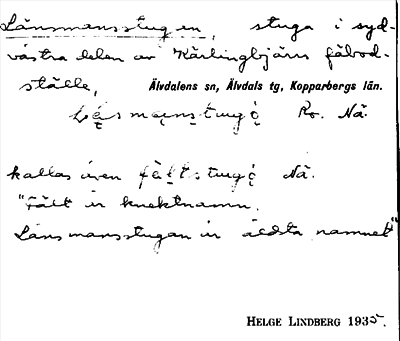 Länsmansstugan, stuga i syd-
västra delen av Kärlingbjärs fäbod-
ställe, Älvdalens sn, Älvdals tg, Kopparbergs län.
Ro. Nä.
kallas även Nä.
"Fält är knektnamn.
Länsmansstugan är äldsta namnet"
HELGE LINDBERG 1935.